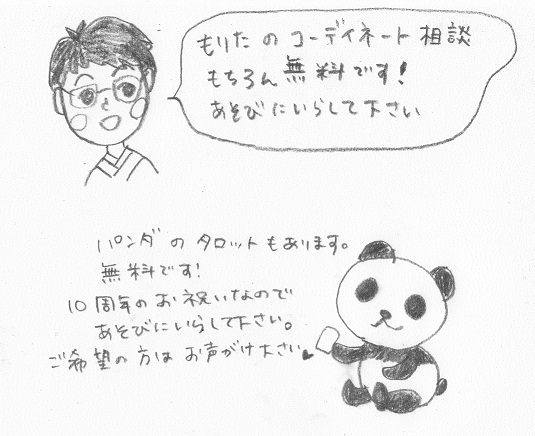 もりたのコーディネート相談
もちろん無料です!
あそびにいらして下さい
パンダのタロットもあります。
無料です!
10周年のお祝いなので
あそびにいらして下さい。
ご希望の方はお声がけ下さい♥